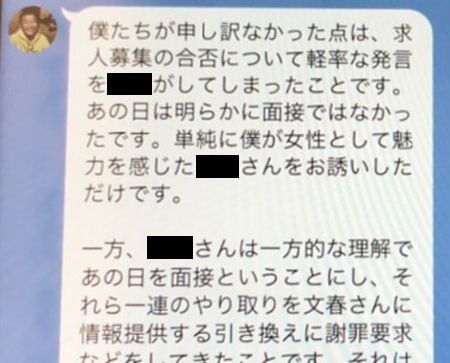 僕たちが申し訳なかった点は、求
人募集の合否について軽率な発言
を
がしてしまったことです。
あの日は明らかに面接ではなかっ
たです。単純に僕が女性として魅
力を感じた
さんをお誘いした
だけです。
一方、
さんは一方的な理解で
あの日を面接ということにし、そ
れら一連のやり取りを文春さんに
情報提供する引き換えに謝罪要求
などをしてきたことです。それは